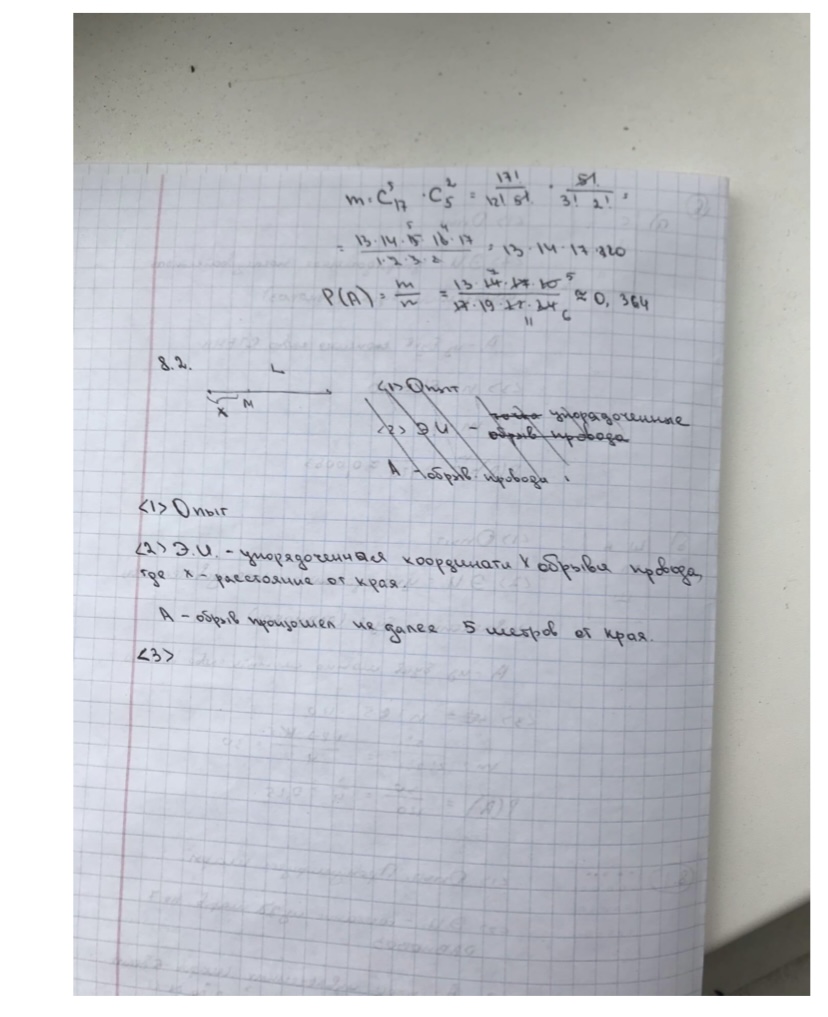 m = C³₁₇ · C²₅ = 17!/12! 5! · 5!/3! 2! =
= 13·14·15·16·17/1·2·3·2 = 13·14·17·320
P(A) = m/n = 13·14·17·10/17·19·11·24 ≈ 0,364
8.2.
L
x M
<1> Опыт
<2> Э.И. – точка упорядоченные
обрыв провода
A – обрыв провода
<1> Опыт
<2> Э.И. – упорядоченная координата x обрыва провода,
где x – расстояние от края.
A – обрыв произошел не далее 5 метров от края.
<3>